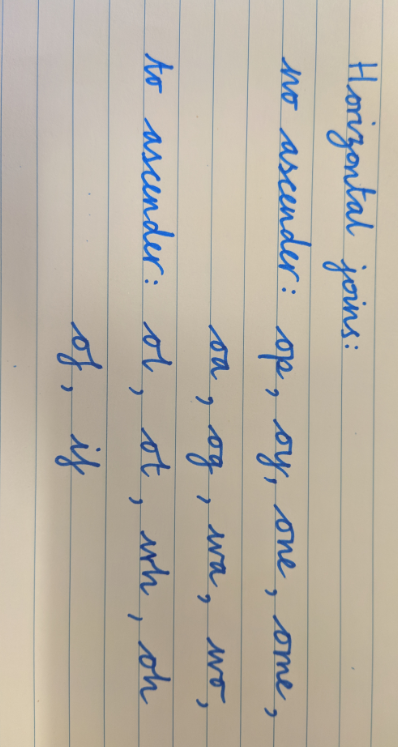 Horizontal joins:
no ascender: op, oy, one, ome,
oa, og, wa, wo,
to ascender: ol, ot, wh, oh
of, if